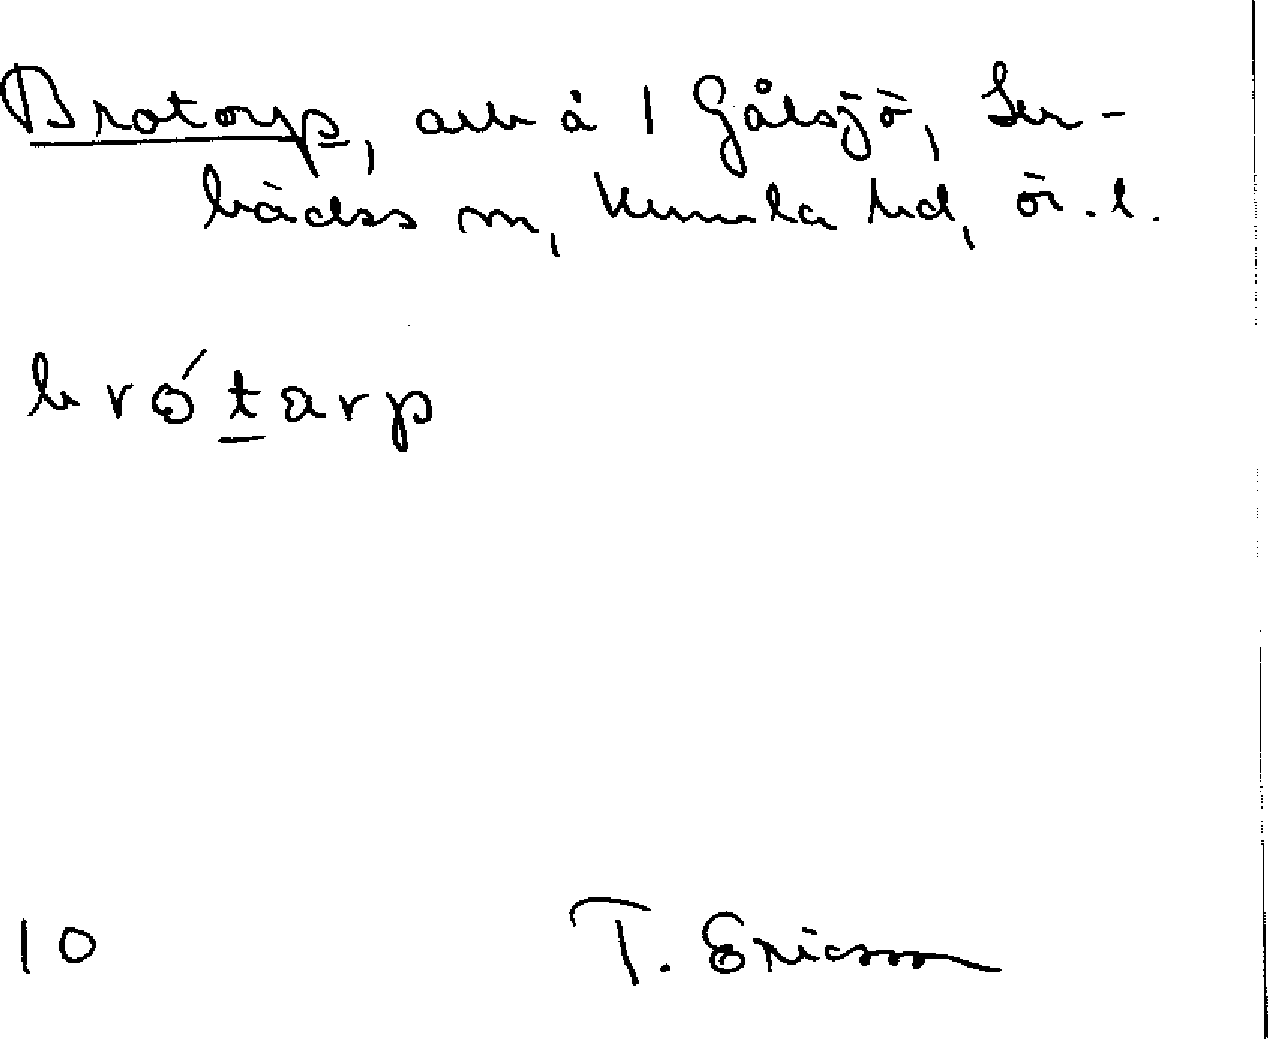 Brotorp, arb å 1 Gålsjö, Ler-
bäcks sn, Kumla hd, ör.l.
brótarp
10 T. Ericsson